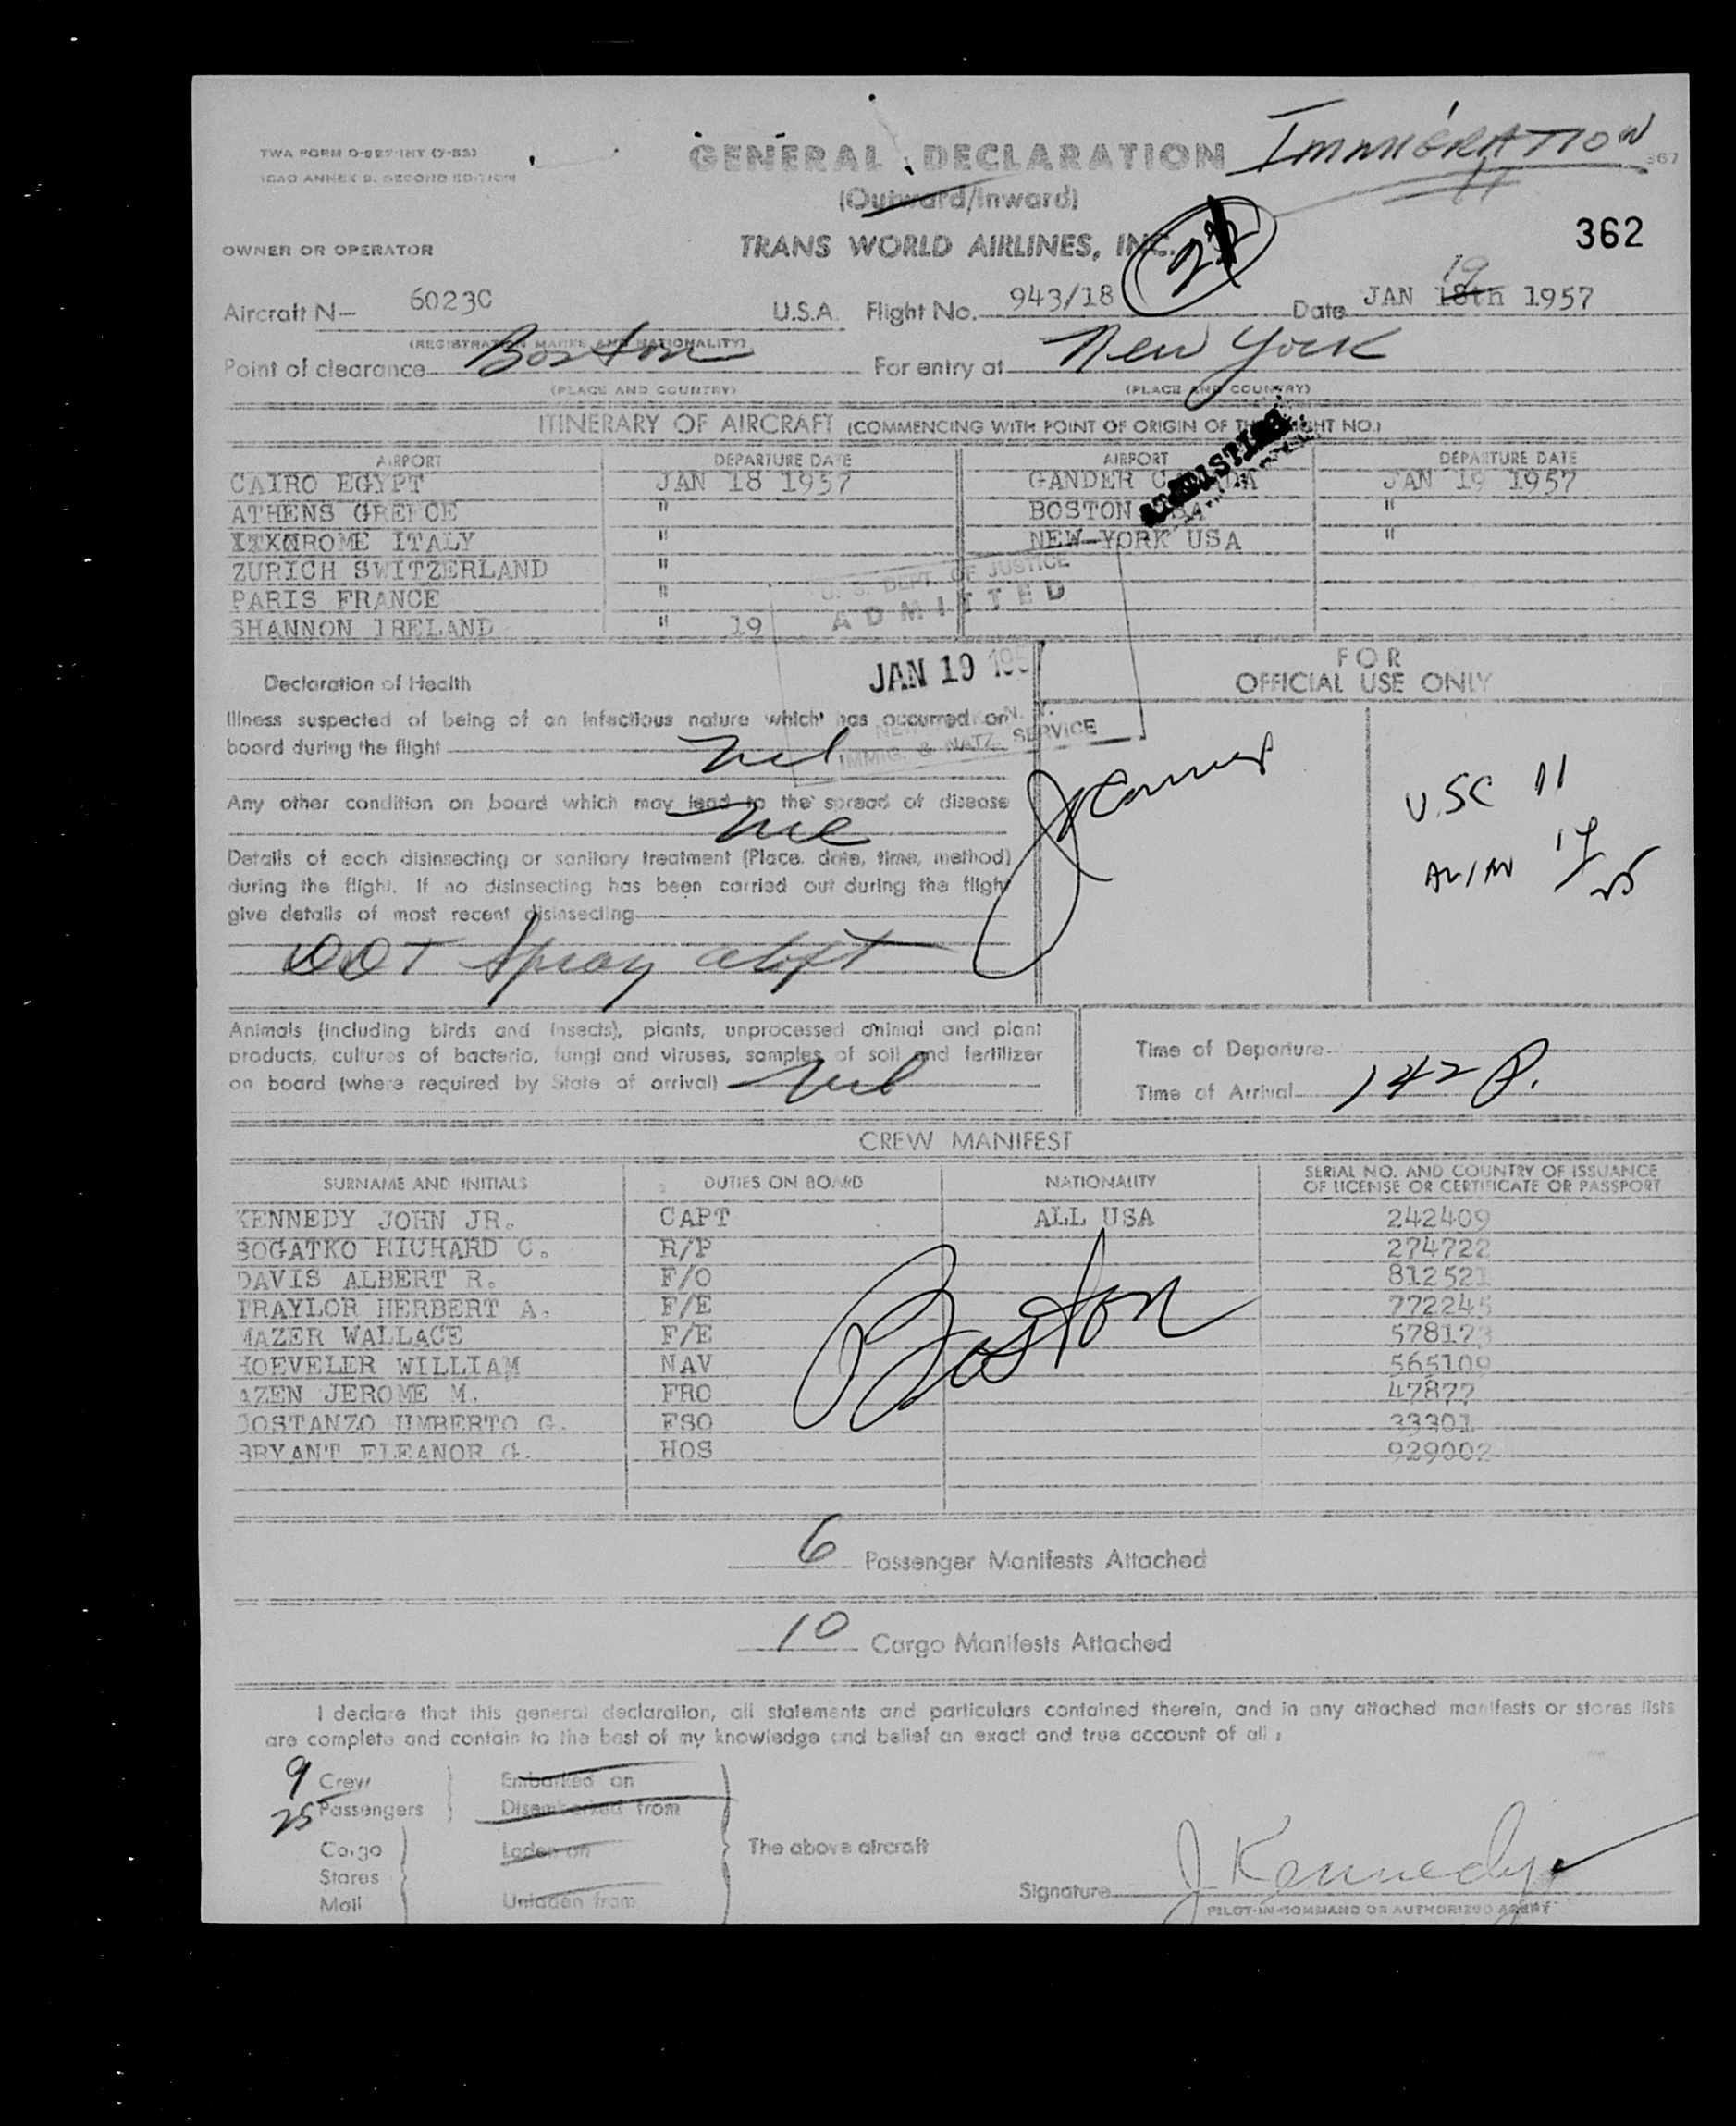 TWA FORM O-997-INT (7-55)
ICAO ANNEX 9. SECOND EDITION
GENERAL DECLARATION
IMMIGRATION
(Outward/Inward)
362
OWNER OR OPERATOR
TRANS WORLD AIRLINES, INC.
Aircraft N- 6023C U.S.A. Flight No. 943/18 Date JAN 18th 19 1957
(REGISTRATION MARKS AND NATIONALITY)
Point of clearance Boston For entry at New York
(PLACE AND COUNTRY) (PLACE AND COUNTRY)
ITINERARY OF AIRCRAFT (COMMENCING WITH POINT OF ORIGIN OF THIS FLIGHT NO.)
AIRPORT DEPARTURE DATE AIRPORT DEPARTURE DATE
CAIRO EGYPT JAN 18 1957 GANDER CANADA JAN 19 1957
ATHENS GREECE " BOSTON USA "
ROME ITALY " NEW YORK USA "
ZURICH SWITZERLAND "
PARIS FRANCE "
SHANNON IRELAND " 19
U. S. DEPT. OF JUSTICE
ADMITTED
JAN 19 195
NEW YORK, N. Y.
IMMIG. & NATZ. SERVICE
FOR
OFFICIAL USE ONLY
Declaration of Health
Illness suspected of being of an infectious nature which has occurred on
board during the flight nil
Any other condition on board which may lead to the spread of disease
nil
Details of each disinsecting or sanitary treatment (Place, date, time, method)
during the flight. If no disinsecting has been carried out during the flight
give details of most recent disinsecting
DDT Spray aloft
USC 11
Alien 14
25
Animals (including birds and insects), plants, unprocessed animal and plant
products, cultures of bacteria, fungi and viruses, samples of soil and fertilizer
on board (where required by State of arrival) nil
Time of Departure
Time of Arrival 142 P.
CREW MANIFEST
SURNAME AND INITIALS DUTIES ON BOARD NATIONALITY SERIAL NO. AND COUNTRY OF ISSUANCE
OF LICENSE OR CERTIFICATE OR PASSPORT
KENNEDY JOHN JR. CAPT ALL USA 242409
BOGATKO RICHARD C. R/P 274722
DAVIS ALBERT R. F/O 812521
TRAYLOR HERBERT A. F/E 772245
MAZER WALLACE F/E 578173
HOEVELER WILLIAM NAV 565109
AZEN JEROME M. FRO 47877
COSTANZO UMBERTO G. FSO 33301
BRYANT ELEANOR G. HOS 929002
Boston
6 Passenger Manifests Attached
10 Cargo Manifests Attached
I declare that this general declaration, all statements and particulars contained therein, and in any attached manifests or stores lists
are complete and contain to the best of my knowledge and belief an exact and true account of all :
9 Crew Embarked on
25 Passengers Disembarked from
Cargo Laden on The above aircraft
Stores
Mail Unladen from
Signature J Kennedy
PILOT-IN-COMMAND OR AUTHORIZED AGENT